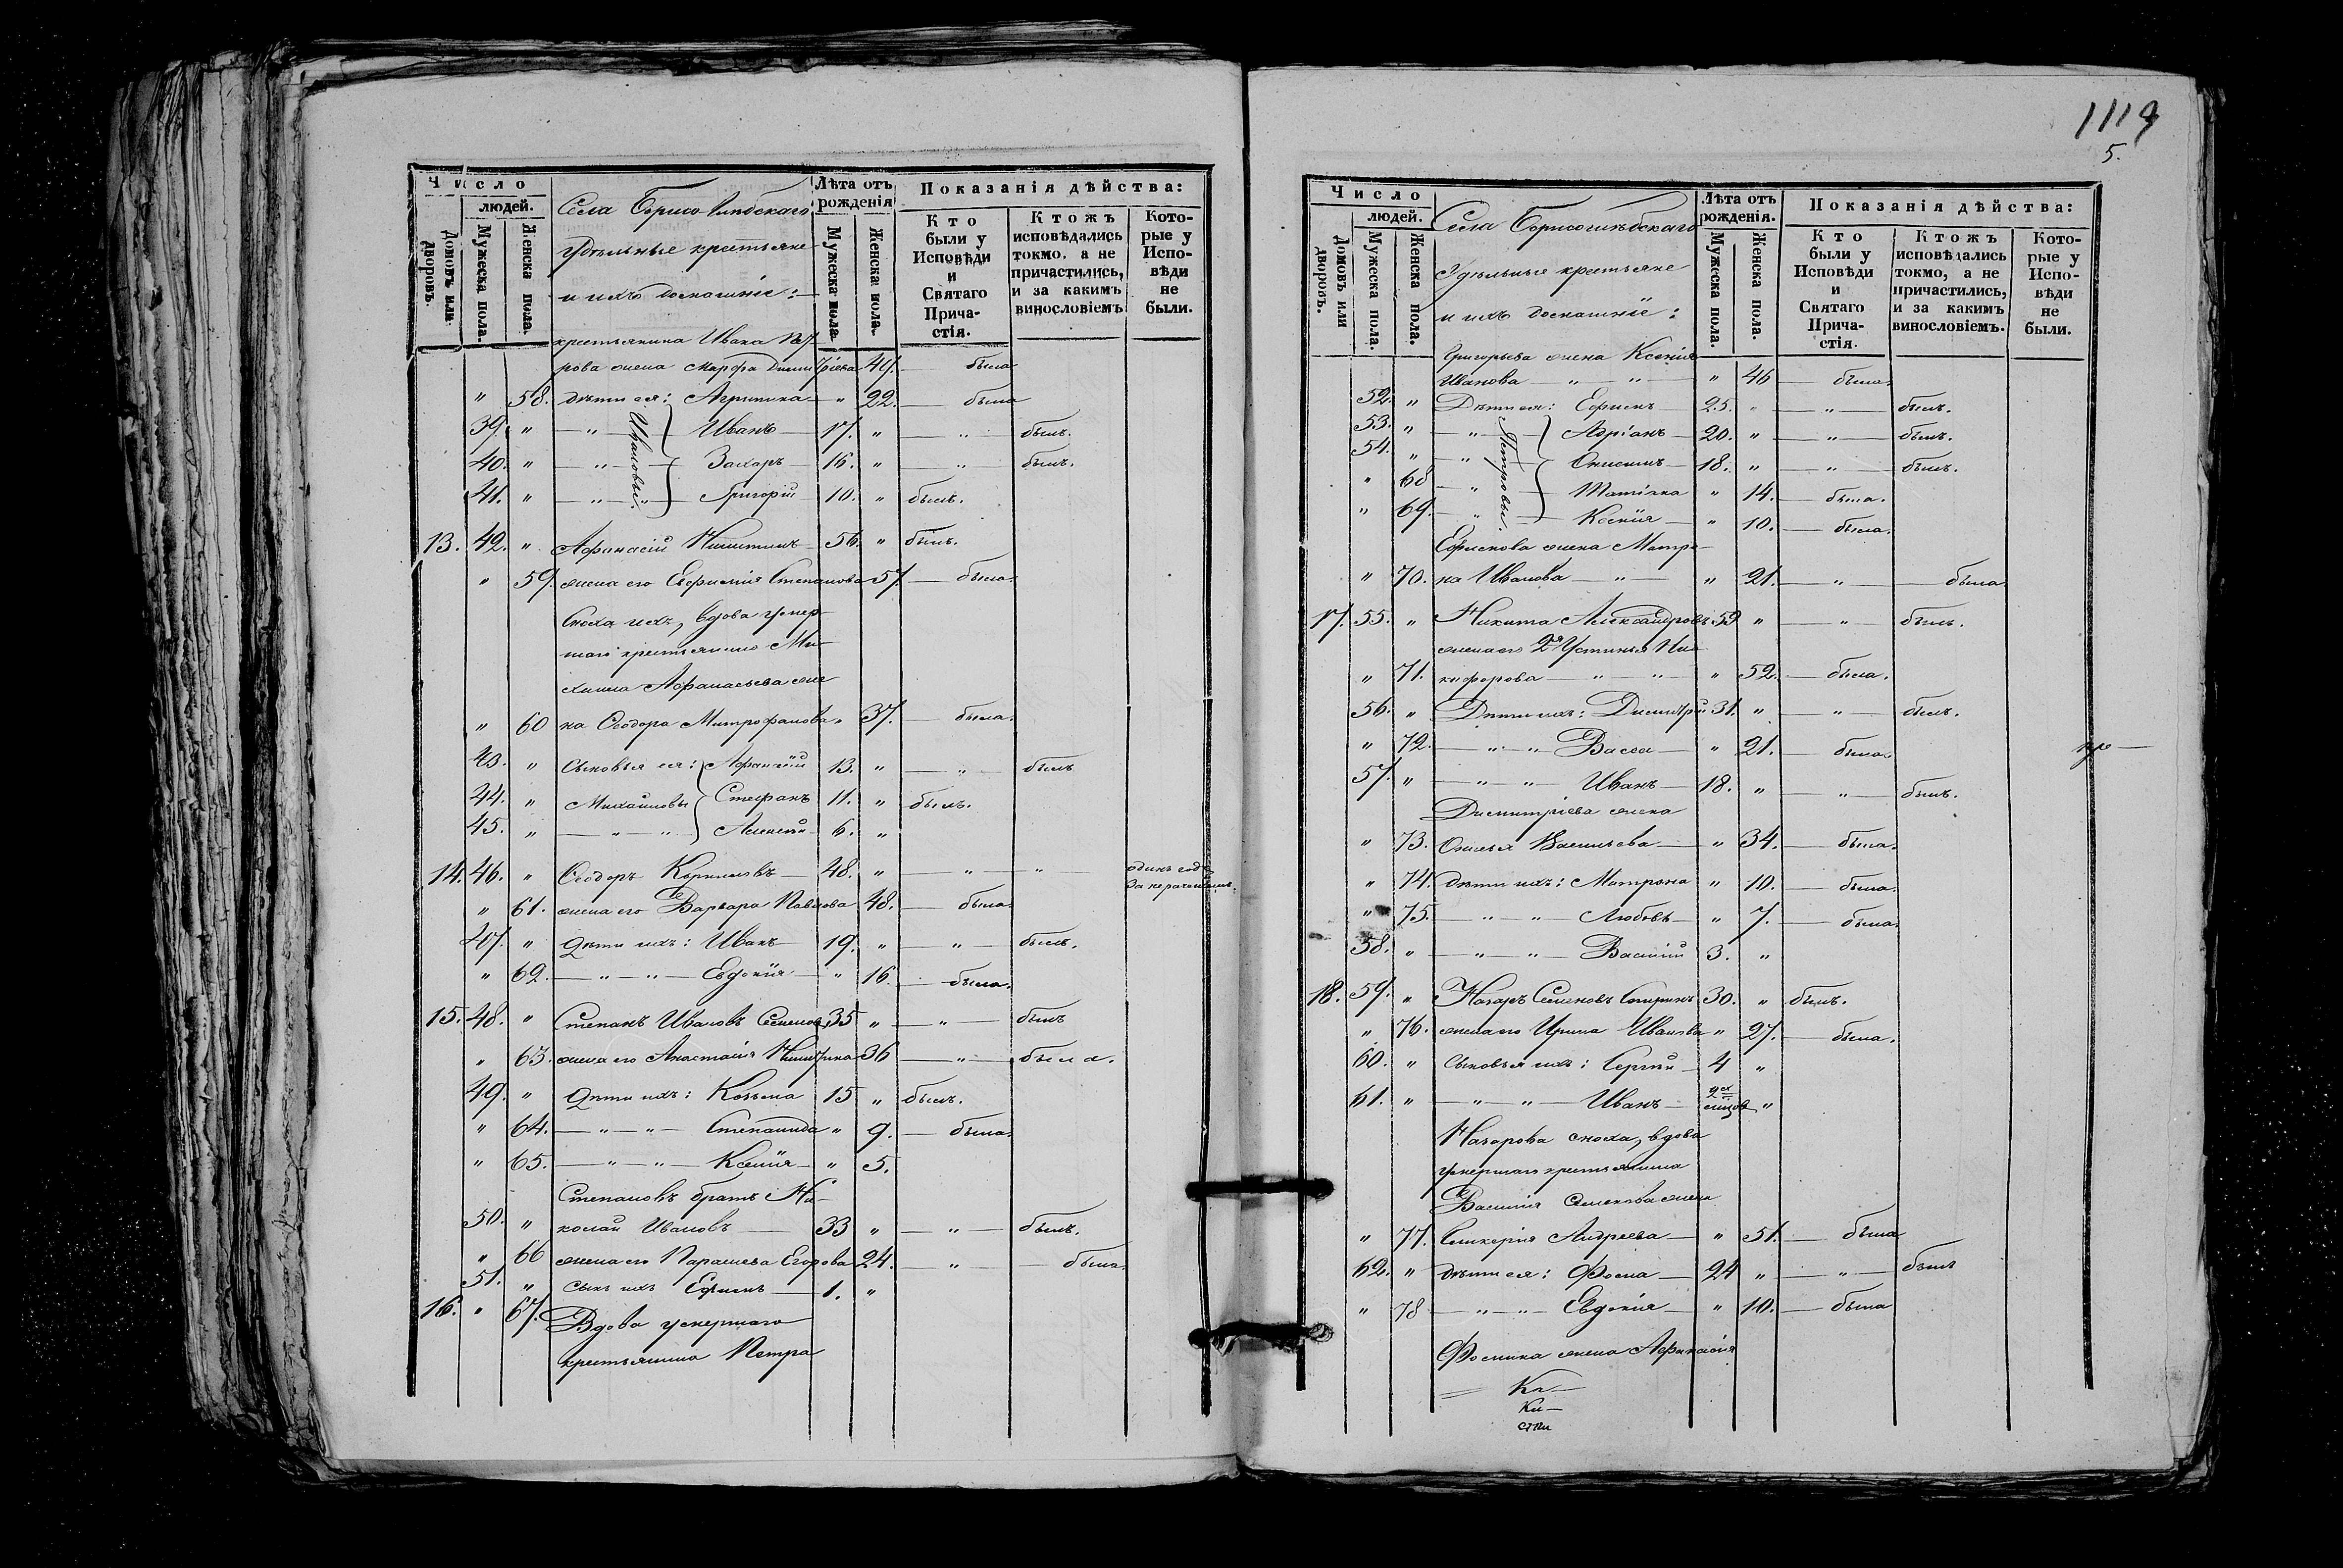 Число
людей.
Домовъ или дворовъ.
Мужеска пола.
Женска пола.
Села Борисоглѣбскаго
удѣльные крестьяне
и ихъ домашніе:
Лѣта отъ рожденія
Мужеска пола.
Женска пола.
Показанія дѣйства:
Кто были у Исповѣди и Святаго Прича-стія.
Ктожъ исповѣдались токмо, а не причастились, и за какимъ винословіемъ
Кото-рые у Испо-вѣди не были.
крестьянина Ивана Пет
рова жена Марфа Димитріева 49. — была
" 58. Дѣти ея: Агрипина — " 22. — была
39. " — " — Ивановы. Иванъ — 17. " — " — былъ.
40. " — " — Захаръ — 16. " — " — былъ.
41. " — " — " — Григорій 10. " былъ.
13. 42. " Афанасій Никитинъ — 56. " былъ.
" 59. жена его Евфимія Степанова 57. — была.
Сноха ихъ, вдова умер
шаго крестьянина Ми
хаила Афанасьева же
" 60 на Ѳеодора Митрофанова " 37. была.
43. " Сыновья ея: Афанасій 13. " — " — былъ
44. " Михайловы Стефанъ 11. " былъ.
45. " — " — " Алексѣй 6. "
14. 46. " Ѳеодоръ Корниловъ — 48. " — " — " одинъ годъ
за нераченіемъ.
" 61. жена его Варвара Павлова 48. — была.
47. " Дѣти ихъ: Иванъ 19. " — " — былъ.
" 62. — " — " — Евдокія — " 16 — была.
15. 48. " Степанъ Ивановъ 35 " — " — былъ
" 63. жена его Анастасія 36 — " — была.
49. " Дѣти ихъ: Козьма 15 " былъ.
" 64. — " — " — Степанида " 9. — была.
" 65. — " — " — Ксенія — " 5.
Степановъ братъ Ни-
50. " колай Ивановъ — 33 " — " — былъ.
" 66 жена его Параскева Егорова 24. — " — была.
51. " сынъ ихъ Ефимъ — 1. "
16. " 67. Вдова умершаго
крестьянина Петра
1119
5.
Число
людей.
Домовъ или дворовъ.
Мужеска пола.
Женска пола.
Села Борисоглѣбскаго
Удѣльные крестьяне
и ихъ домашніе:
Лѣта отъ рожденія.
Мужеска пола.
Женска пола.
Показанія дѣйства:
Кто были у Исповѣди и Святаго Прича-стія.
Ктожъ исповѣдались токмо, а не причастились, и за какимъ винословіемъ.
Кото-рые у Испо-вѣди не были.
Григорьева жена Ксенія
Иванова — " — " — " 46 — была.
52. " Дѣти ея: Ефимъ — 25. " — " — былъ.
53. " — " — Петровы. Адріанъ — 20. " — " — былъ.
54. " — " — Онисимъ — 18. " — " — былъ.
" 68 — " — Татіана " 14. — была.
" 69. — " — Ксенія — " 10. — была.
Ефимова жена Матро-
" 70. на Иванова — " — " 21. — " — была
17. 55. " Никита Александровъ 59 " — " — былъ.
жена его 2я Устинья Ни
" 71. кифорова — " — " — " 52. — была.
56. " Дѣти ихъ: Димитрій 31. " — " — былъ.
" 72. — " — " Васса — " 21. — была.
57. " — " — " Иванъ — 18. " — " — былъ.
Димитріева жена
" 73. Васильева — " 34. — была.
" 74. дѣти ихъ: Матрона " 10. — была.
" 75. — " — " — Любовь — " 7. — была.
58. " — " — " — Василій 3. "
18. 59. " Назаръ Семеновъ 30. " былъ.
" 76. жена его Ирина Иванова " 27. — была.
60. " Сыновья ихъ: Сергѣй — 4 "
61. " — " — " — Иванъ — 2ех мѣсяцов "
Назарова сноха, вдова
умершаго крестьянина
Василія Семенова жена
" 77. Гликерія Андреева — " 51. — была
62. " дѣти ея: Фома — 24 " — " — былъ
" 78 — " — " — Евдокія — " 10. — была
Фомина жена Афанасія
Ка —
Ки —